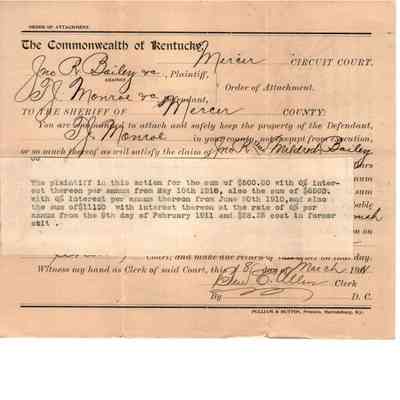 ORDER OF ATTACHMENT.
The Commonwealth of Kentucky,
Mercer CIRCUIT COURT,
Jno R. Bailey &c, Plaintiff,
AGAINST Order of Attachment.
T. J. Monroe &c Defendant,
TO THE SHERIFF OF Mercer COUNTY:
You are commanded to attach and safely keep the property of the Defendant,
T. J. Monroe in your county, not exempt from execution,
or so much thereof as will satisfy the claim of Jno R. & Mildred Bailey
The plaintiff in this action for the sum of $500.00 with 6% inter-
est thereon per annum from May 10th 1910, also the sum of $6500.
with 6% interest per annum thereon from June 20th 1910, and also
the sum of $11120 with interest thereon at the rate of 6% per
annum from the 9th day of February 1911 and $28.25 cost in former
suit .
Court, and make due return on that day.
Witness my hand as Clerk of said Court, this 8 day of March 1911
Ben C. Allin Clerk
By D. C.
PULLIAM & HUTTON, Printers, Harrodsburg, Ky.